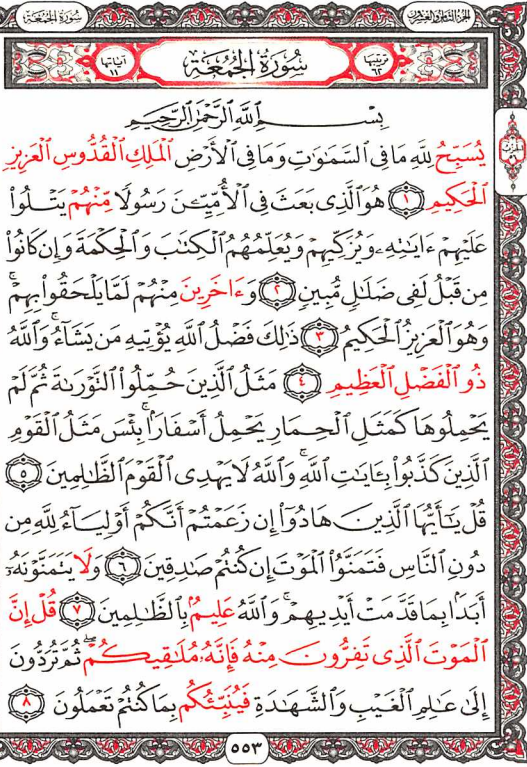 الجزء الثامن والعشرون سُورَةُ الجُمُعَةِ
ترتيبها ٦٢ سُورَةُ الجُمُعَةِ آياتها ١١
بِسْمِ ٱللَّهِ ٱلرَّحْمَٰنِ ٱلرَّحِيمِ
يُسَبِّحُ لِلَّهِ مَا فِى ٱلسَّمَٰوَٰتِ وَمَا فِى ٱلْأَرْضِ ٱلْمَلِكِ ٱلْقُدُّوسِ ٱلْعَزِيزِ
ٱلْحَكِيمِ ١ هُوَ ٱلَّذِى بَعَثَ فِى ٱلْأُمِّيِّـۧنَ رَسُولًا مِّنْهُمْ يَتْلُوا۟
عَلَيْهِمْ ءَايَٰتِهِۦ وَيُزَكِّيهِمْ وَيُعَلِّمُهُمُ ٱلْكِتَٰبَ وَٱلْحِكْمَةَ وَإِن كَانُوا۟
مِن قَبْلُ لَفِى ضَلَٰلٍ مُّبِينٍ ٢ وَءَاخَرِينَ مِنْهُمْ لَمَّا يَلْحَقُوا۟ بِهِمْ ۚ
وَهُوَ ٱلْعَزِيزُ ٱلْحَكِيمُ ٣ ذَٰلِكَ فَضْلُ ٱللَّهِ يُؤْتِيهِ مَن يَشَآءُ ۚ وَٱللَّهُ
ذُو ٱلْفَضْلِ ٱلْعَظِيمِ ٤ مَثَلُ ٱلَّذِينَ حُمِّلُوا۟ ٱلتَّوْرَىٰةَ ثُمَّ لَمْ
يَحْمِلُوهَا كَمَثَلِ ٱلْحِمَارِ يَحْمِلُ أَسْفَارًۢا ۚ بِئْسَ مَثَلُ ٱلْقَوْمِ
ٱلَّذِينَ كَذَّبُوا۟ بِـَٔايَٰتِ ٱللَّهِ ۚ وَٱللَّهُ لَا يَهْدِى ٱلْقَوْمَ ٱلظَّٰلِمِينَ ٥
قُلْ يَٰٓأَيُّهَا ٱلَّذِينَ هَادُوٓا۟ إِن زَعَمْتُمْ أَنَّكُمْ أَوْلِيَآءُ لِلَّهِ مِن
دُونِ ٱلنَّاسِ فَتَمَنَّوُا۟ ٱلْمَوْتَ إِن كُنتُمْ صَٰدِقِينَ ٦ وَلَا يَتَمَنَّوْنَهُۥٓ
أَبَدًۢا بِمَا قَدَّمَتْ أَيْدِيهِمْ ۚ وَٱللَّهُ عَلِيمٌۢ بِٱلظَّٰلِمِينَ ٧ قُلْ إِنَّ
ٱلْمَوْتَ ٱلَّذِى تَفِرُّونَ مِنْهُ فَإِنَّهُۥ مُلَٰقِيكُمْ ۖ ثُمَّ تُرَدُّونَ
إِلَىٰ عَٰلِمِ ٱلْغَيْبِ وَٱلشَّهَٰدَةِ فَيُنَبِّئُكُم بِمَا كُنتُمْ تَعْمَلُونَ ٨
٥٥٣